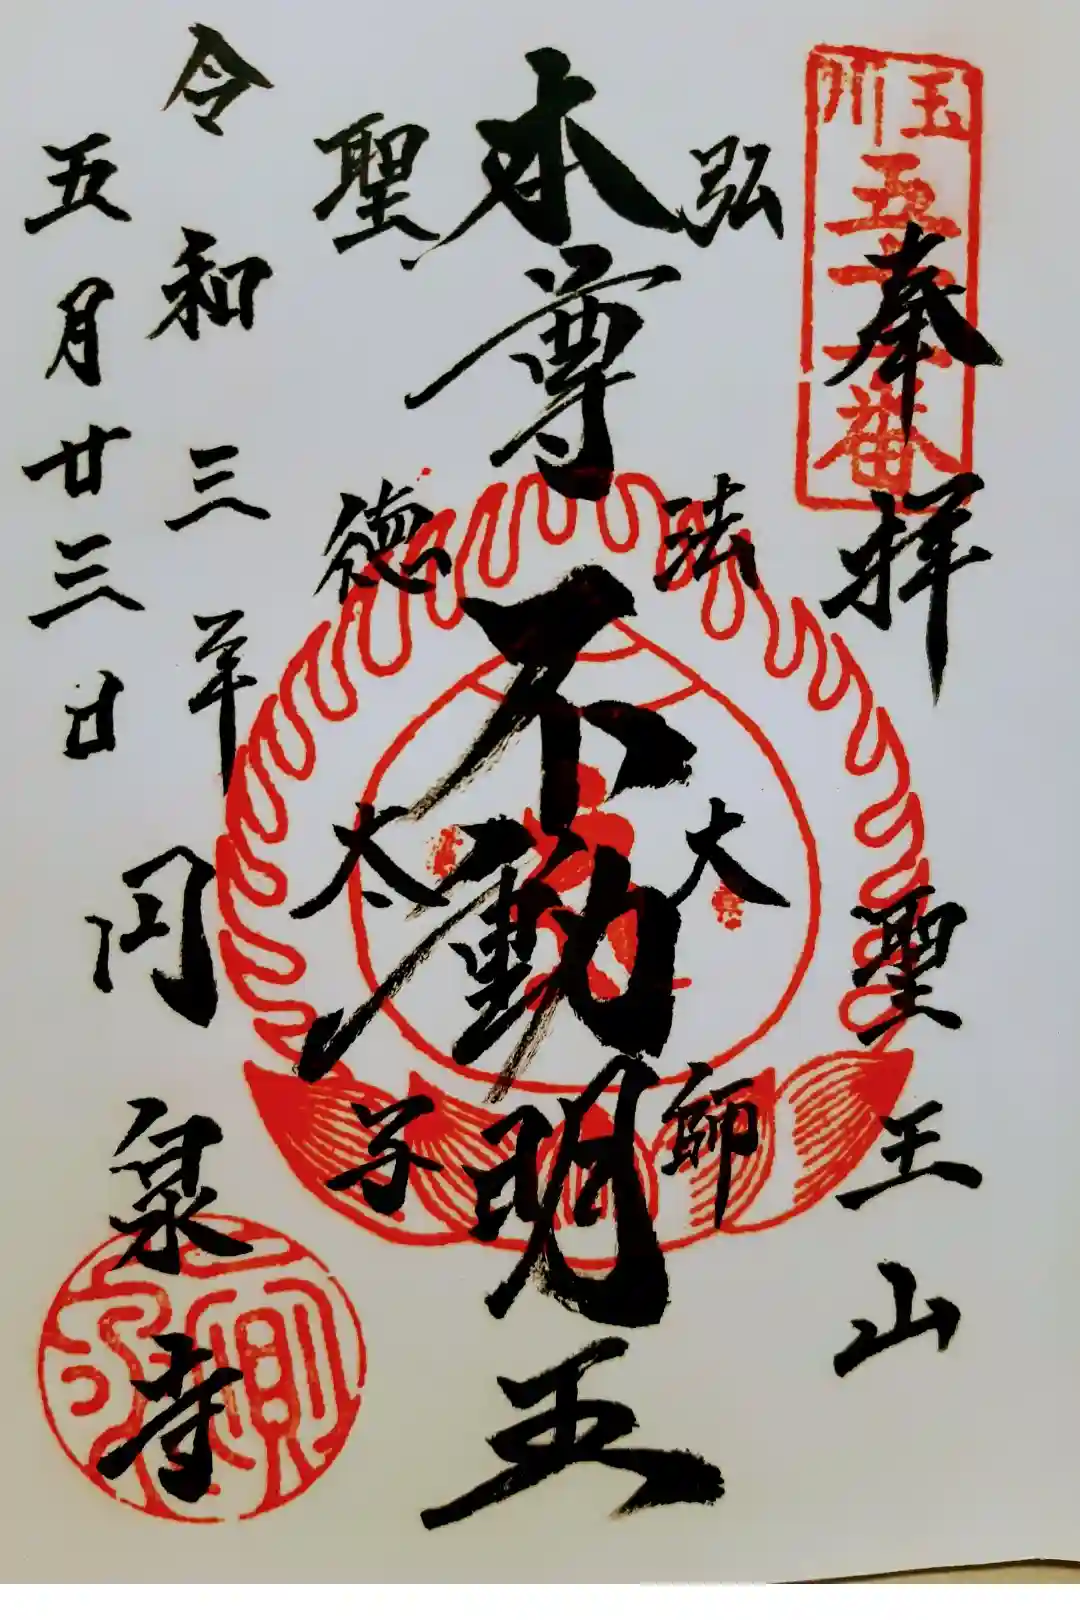 玉川
五十一番
奉拝
聖王山
弘法大師
本尊不動明王
聖徳太子
令和三年
五月廿三日
円泉寺